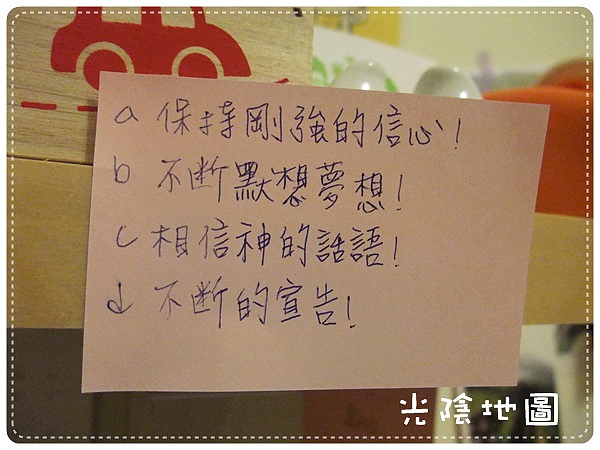 a 保持剛強的信心!
b 不斷默想夢想!
c 相信神的話語!
d 不斷的宣告!
光陰地圖